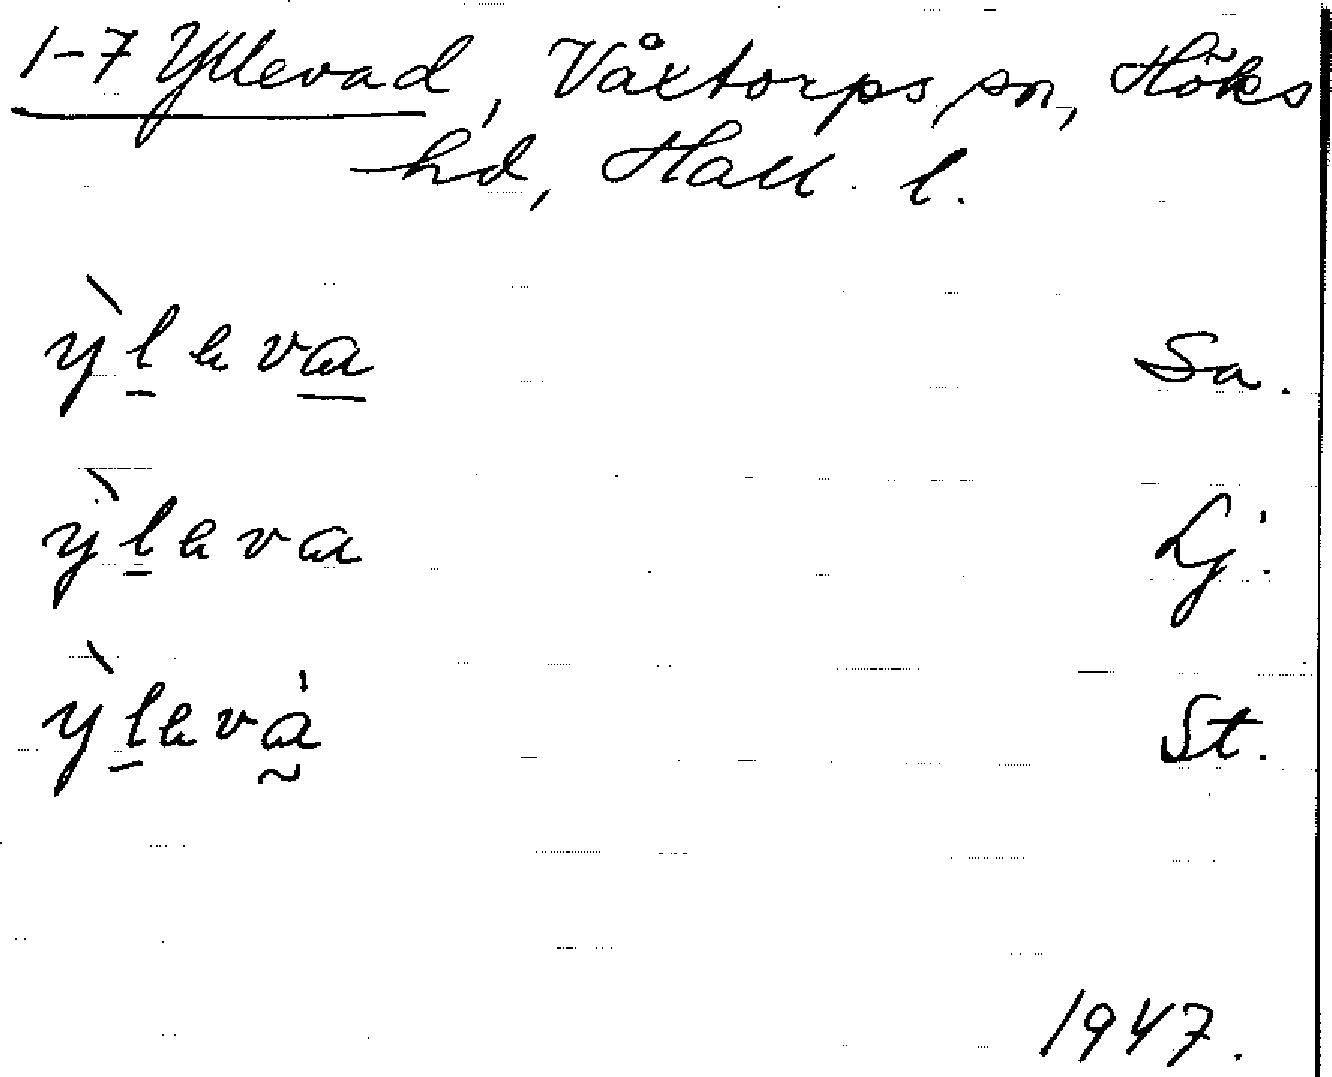 1-7 Yllevad, Våxtorps sn, Höks
hd, Hall. l.
ỳlava Sa.
ỳlava Lj.
ỳlavá St.
1947.